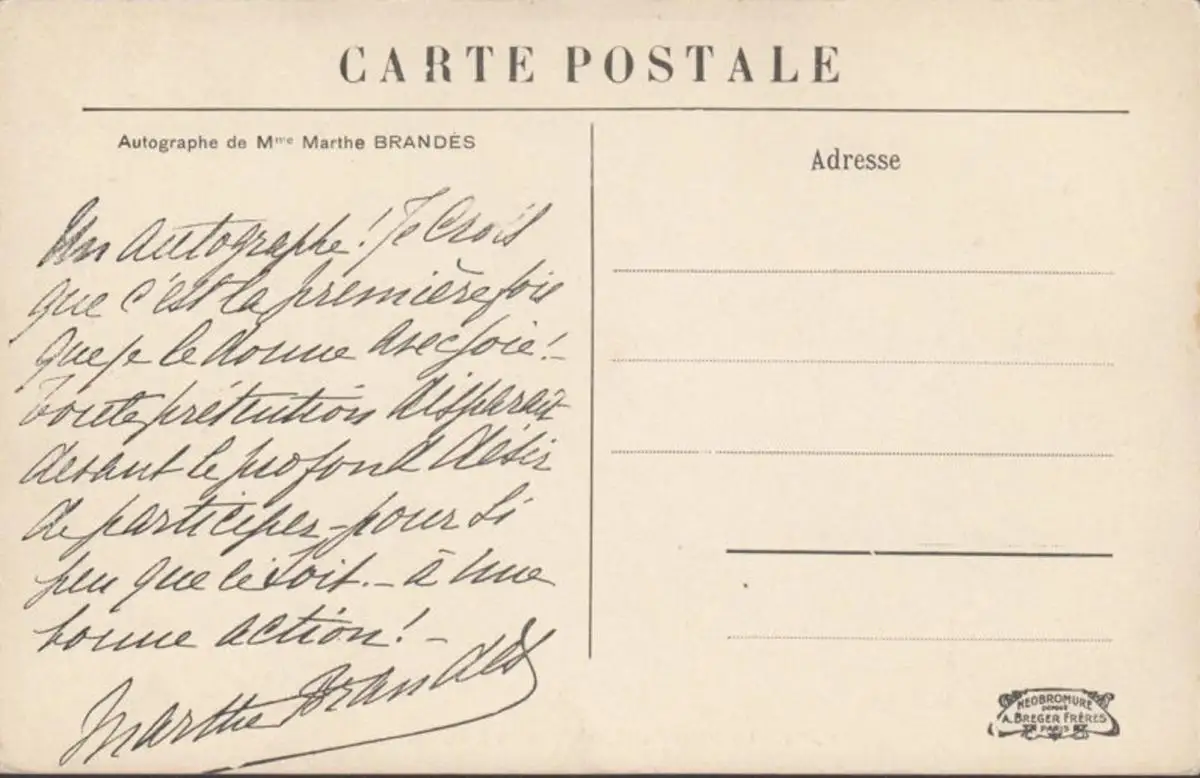 CARTE POSTALE
Autographe de Mme Marthe BRANDÈS
Adresse
Un autographe! Je crois
que c'est la première fois
que je le donne avec joie! –
Toute prétention disparait
devant le profond désir
de participer – pour si
peu que ce soit. – à une
bonne action! –
Marthe Brandès
NEOBROMURE
DÉPOSÉ
A. BREGER FRÈRES
PARIS